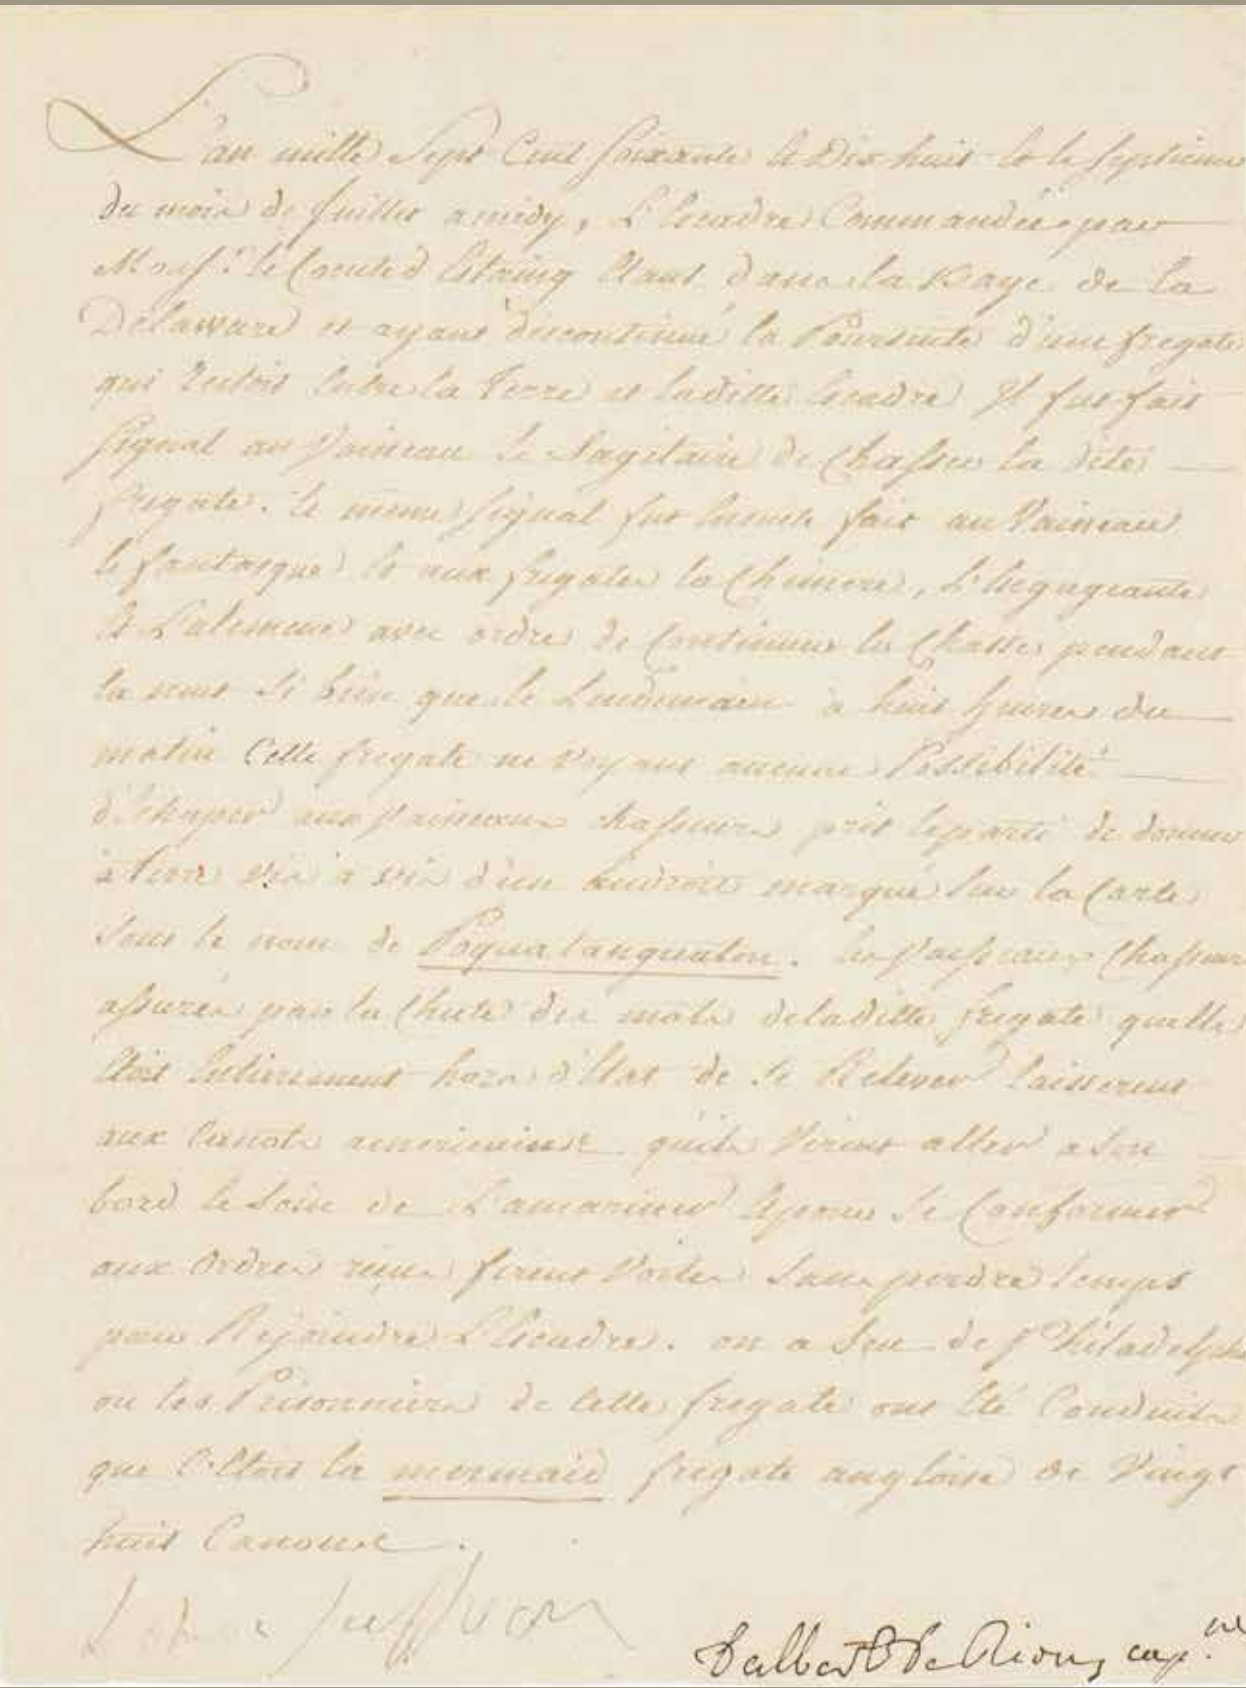 L'an mille Sept Cent Soixante et Dix huit et le septieme
du mois de Juillet a midy, L'Escadre Commandée par
Monsr. le Comte d'Estaing Etant dans la Baye de la
Delaware et ayant discontinué la Poursuite d'une fregate
qui Restoit Entre la Terre et laditte Escadre Il fut fait
Signal au Vaisseau le Sagitaire de Chasser la dite
fregate. le meme signal fut Ensuite fait au Vaisseau
le fantasque et aux fregates la Chimere, L'Engageante
et L'alcmene avec ordre de Continuer la Chasse pendant
la nuit Si bien que le Lendemain a huit heures du
matin Cette fregate ne Voyant aucune Possibilité
d'Echaper aux Vaisseaux chasseurs prit le parti de donner
à Terre vis a vis d'un Endroit marqué Sur la Carte
Sous le nom de Poqua tanquaton. les Vaisseaux Chasseurs
assurés par la Chute des mats de laditte fregate quelle
Etoit Entierement hors d'Etat de Se Relever laisserent
aux Canots ameriquains quils Virent aller a Son
bord le Soin de L'amariner Et pour Se Conformer
aux Ordres reçus firent Voiles Sans perdre temps
pour Rejoindre L'Escadre. on a Seu de Philadelphie
ou les Prisonniers de Cette fregate ont Eté Conduits
que C'Etoit la mermaid fregate angloise de Vingt
huit Canons.
Suffren
Dalbert De Rions, cap.ne